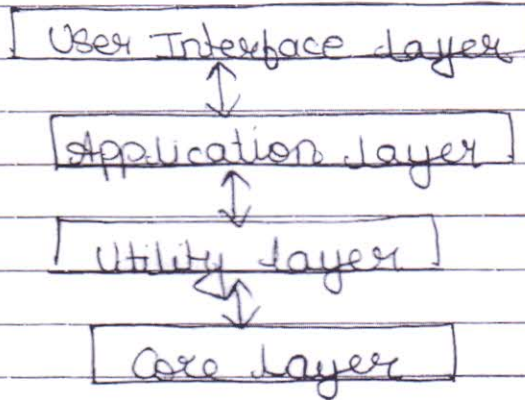 User Interface Layer
Application Layer
Utility Layer
Core Layer